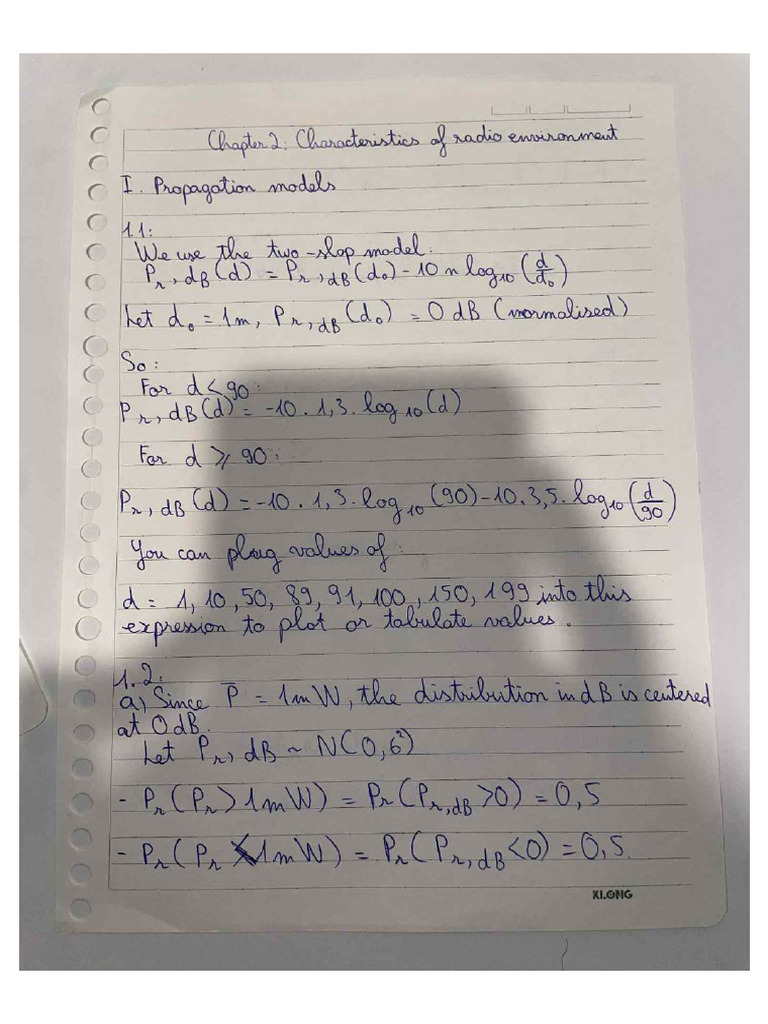 Chapter 2: Characteristics of radio environment
I. Propagation models
1.1:
We use the two-slop model:
Pr,dB(d) = Pr,dB(d₀) - 10 n log₁₀(d/d₀)
Let d₀ = 1m, Pr,dB(d₀) = 0 dB (normalised)
So:
For d < 90:
Pr,dB(d) = -10 . 1,3. log₁₀(d)
For d ⩾ 90:
Pr,dB(d) = -10 . 1,3. log₁₀(90) - 10. 3,5. log₁₀(d/90)
You can plug values of:
d = 1, 10, 50, 89, 91, 100, 150, 199 into this
expression to plot or tabulate values.
1.2:
a) Since P̄ = 1mW, the distribution in dB is centered
at 0 dB.
Let Pr,dB ~ N(0, 6²)
- Pr(Pr > 1mW) = Pr(Pr,dB > 0) = 0,5
- Pr(Pr < 1mW) = Pr(Pr,dB < 0) = 0,5.
XLONG